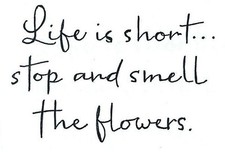 Life is short...
stop and smell
the flowers.